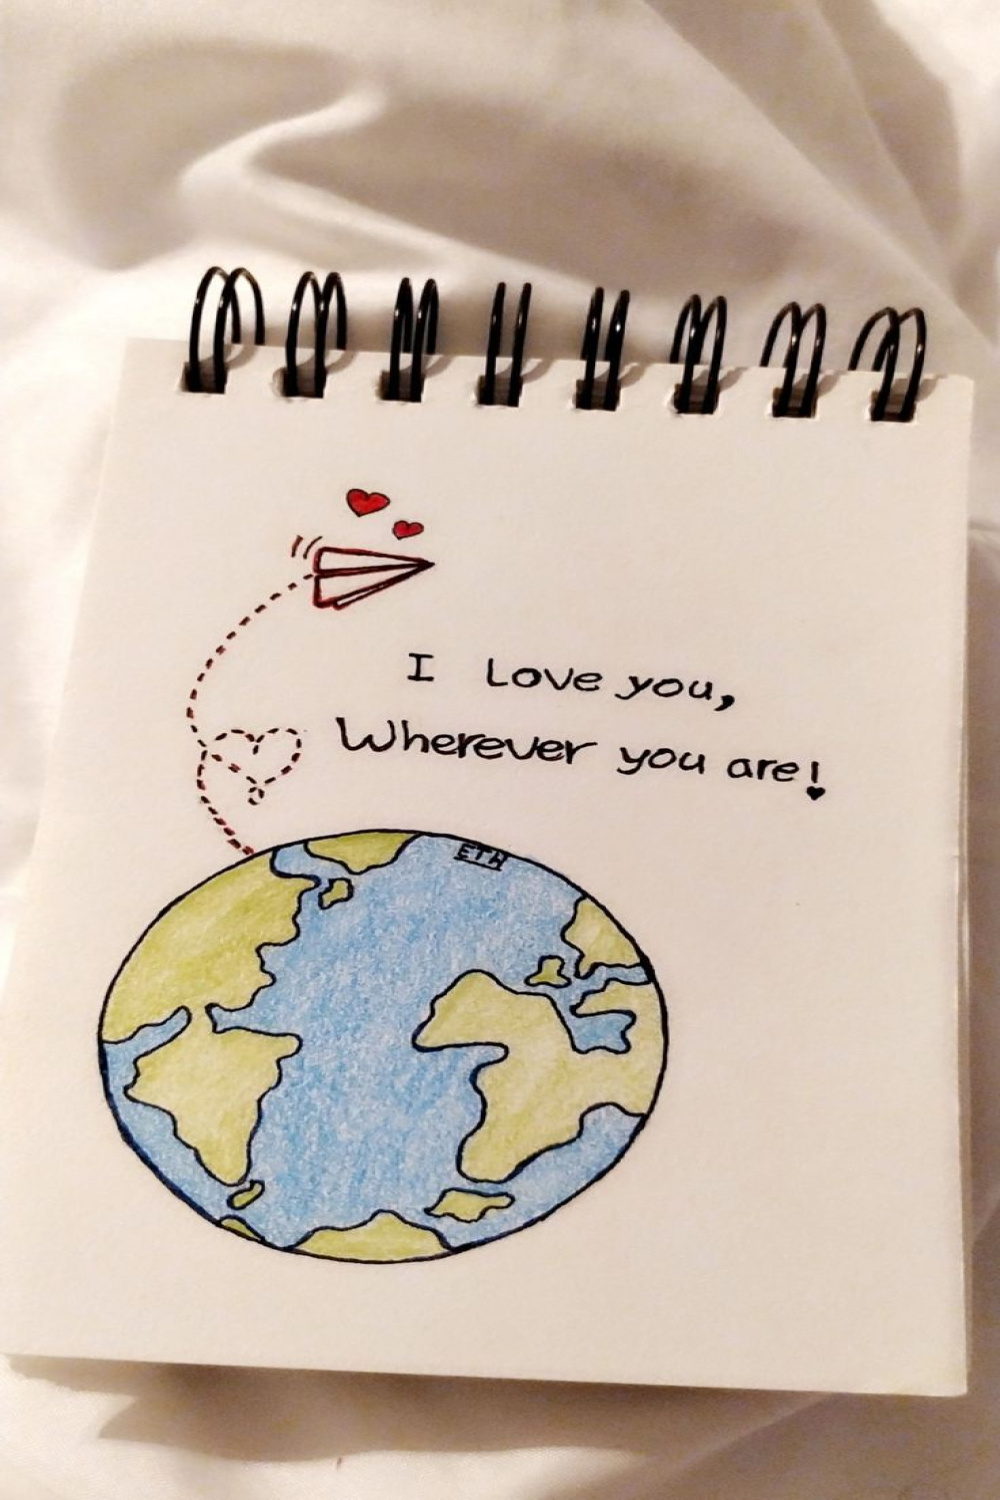 I Love you,
Wherever you are!
ETH